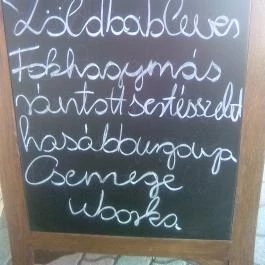 Zöldbableves
Fokhagymás
rántott sertésszelet
hasábburgonya
Csemege
uborka